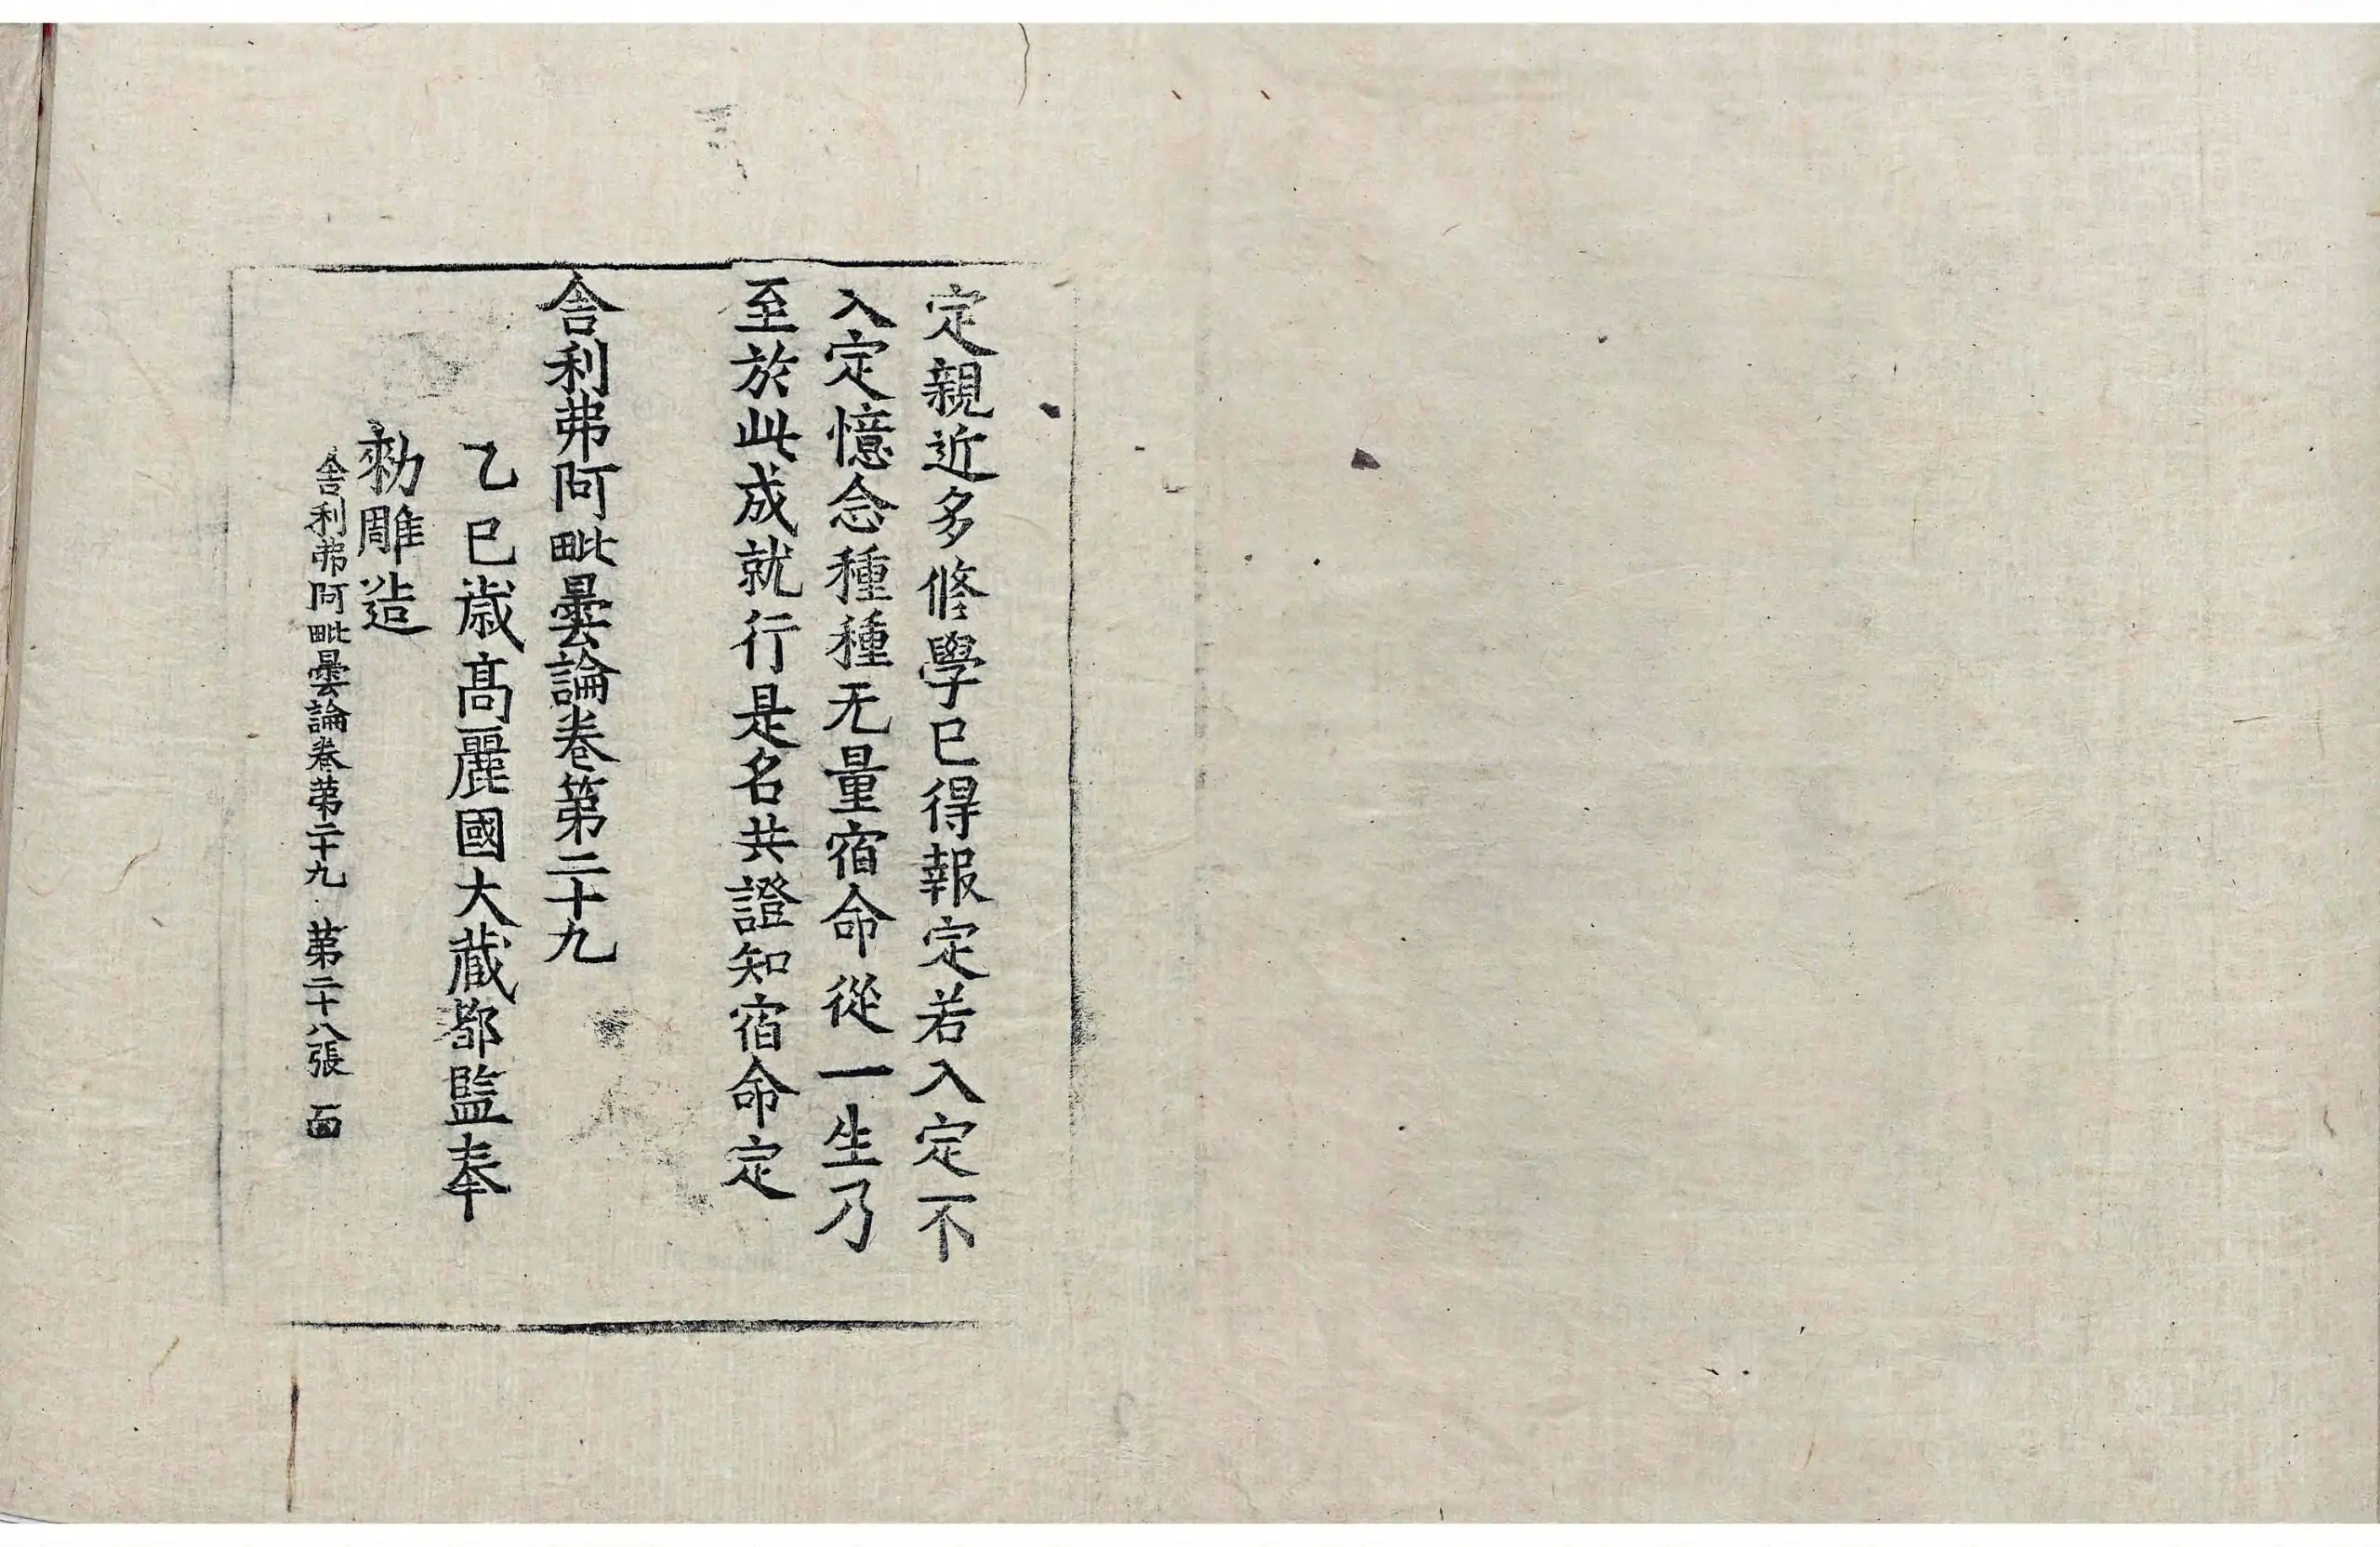 定親近多修學已得報定若入定不
入定憶念種種无量宿命從一生乃
至於此成就行是名共證知宿命定
舍利弗阿毗曇論卷第二十九
乙巳歲高麗國大藏都監奉
勑雕造
舍利弗阿毗曇論卷第二十九 第二十八張 面